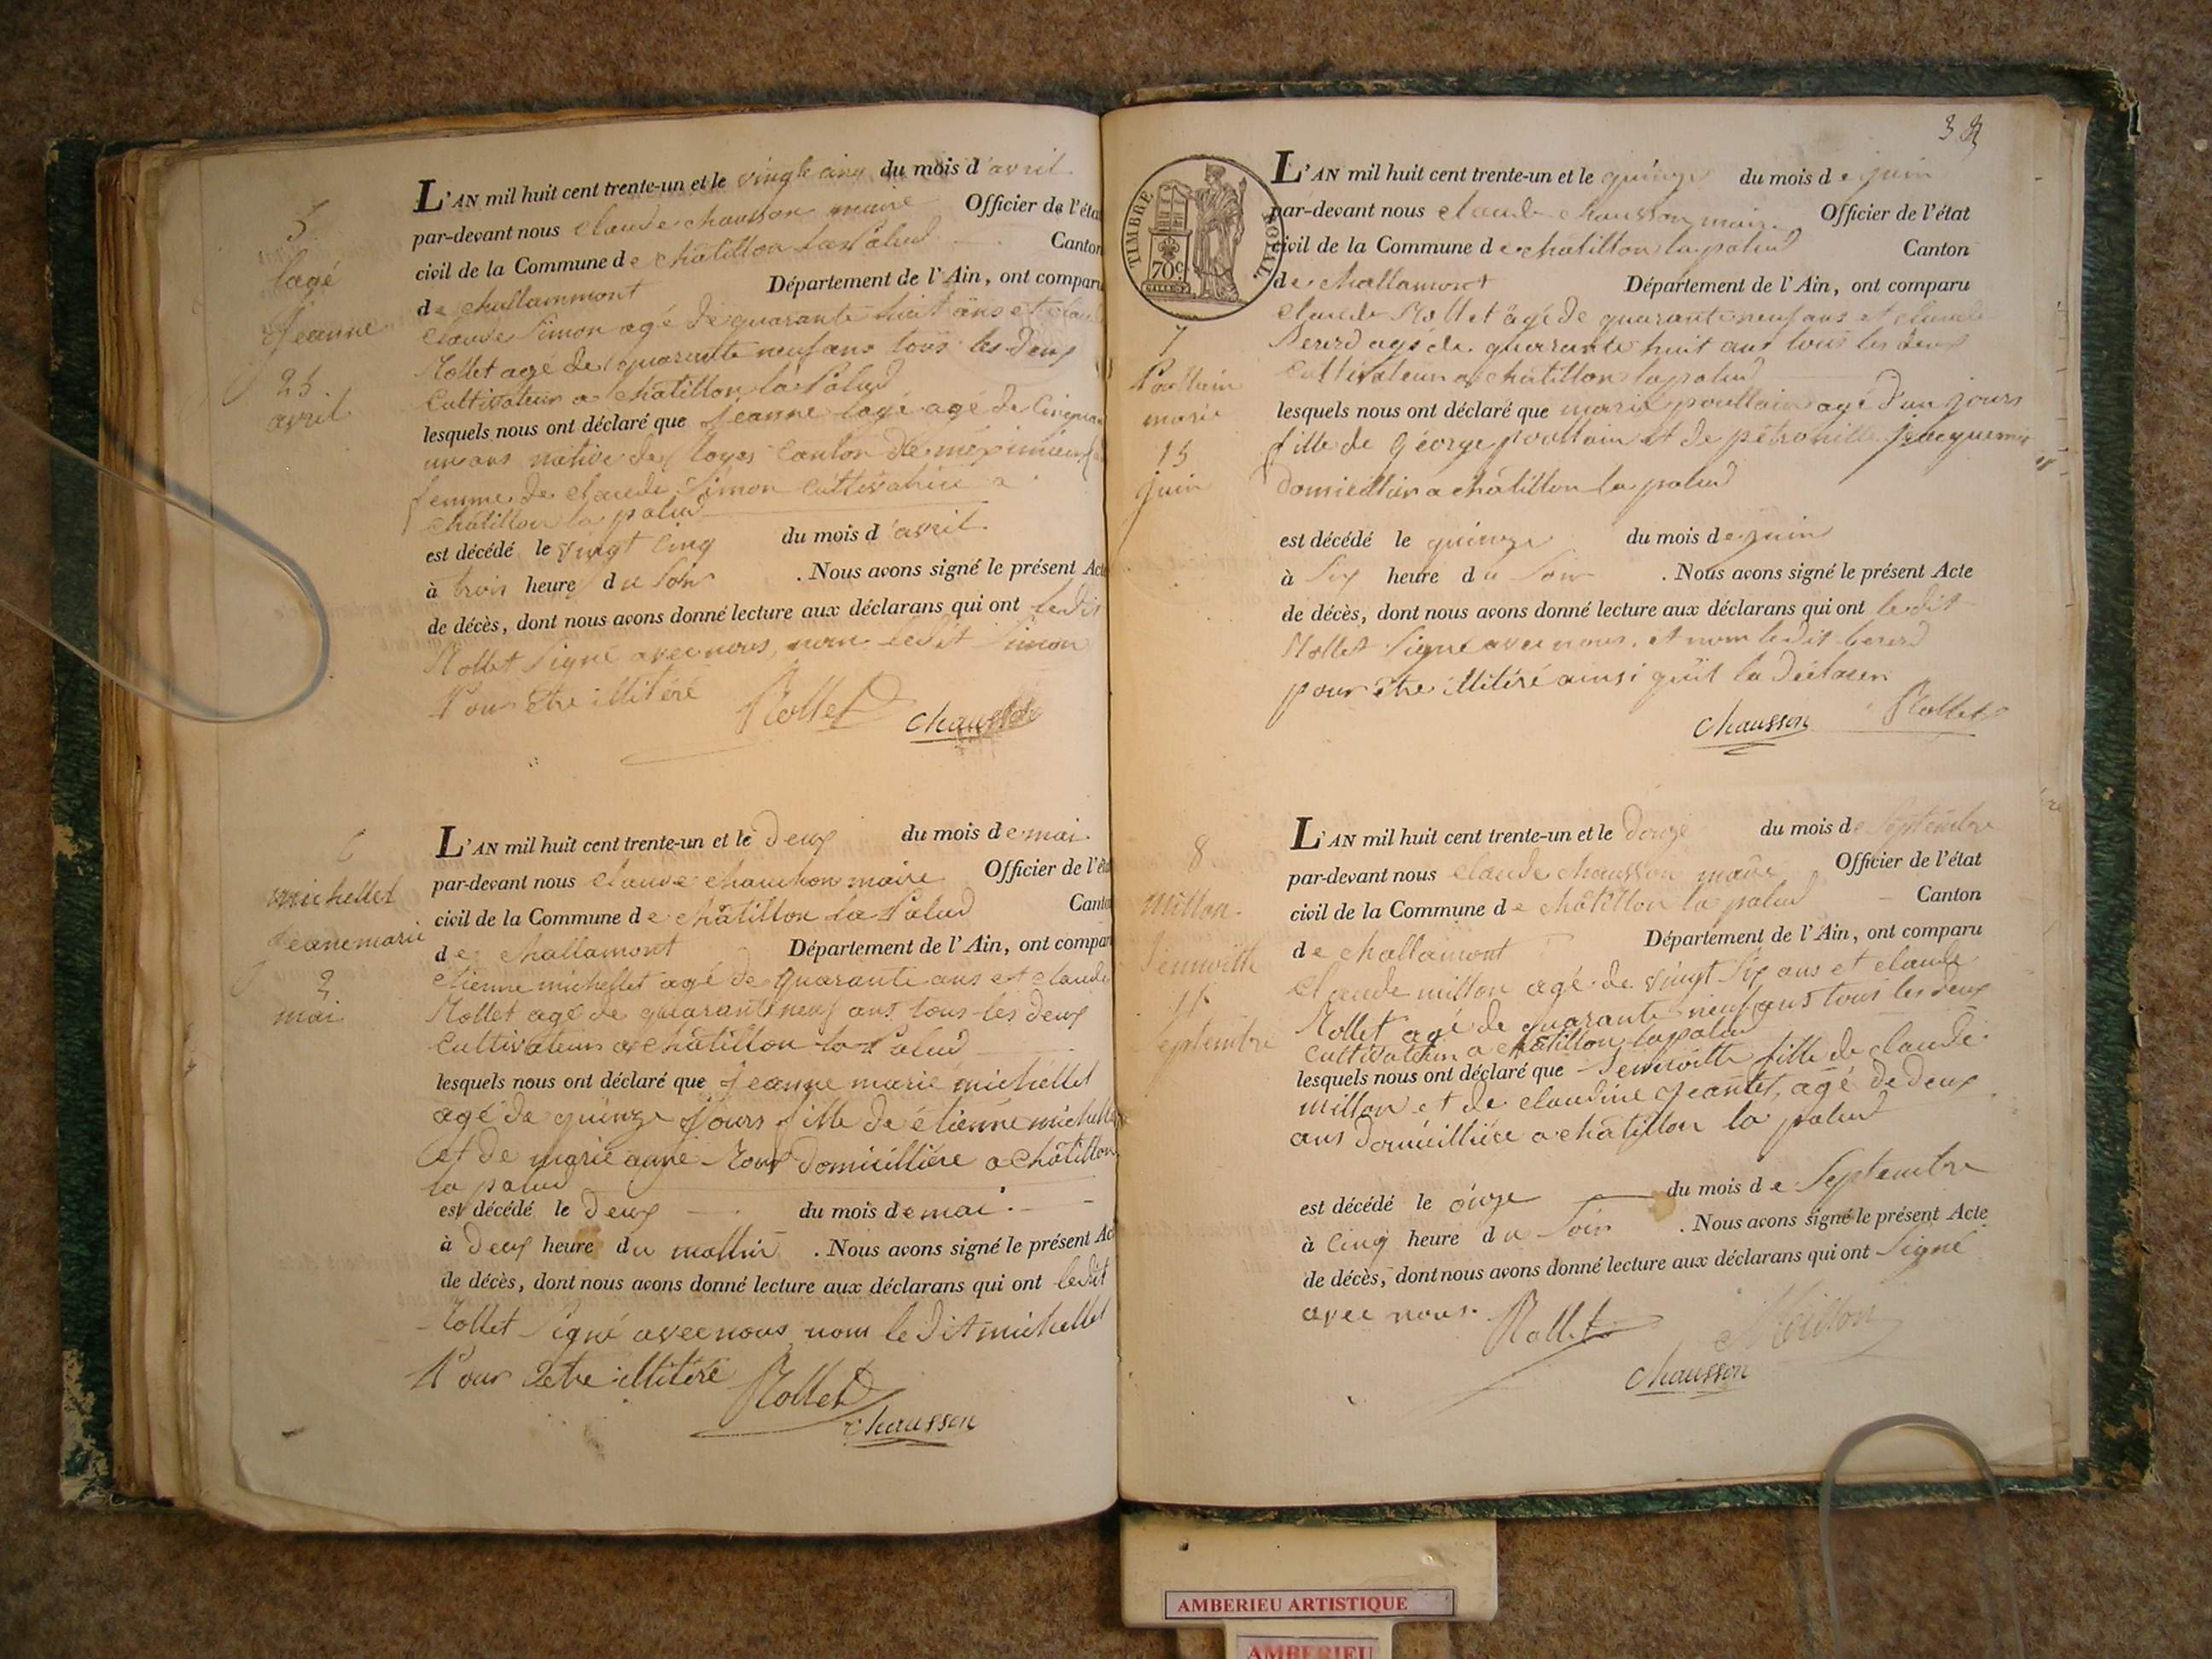 5
lagé
Jeanne
25
avril
L'AN mil huit cent trente-un et le vingt cinq du mois d'avril
par-devant nous claude chausson maire Officier de l'éta
civil de la Commune de châtillon la Palud Canton
de challammont Département de l'Ain, ont comparu
claude Simon agé de quarante huit ans et claude
Rollet agé de quarante neuf ans tous les deux
Cultivateur a châtillon la Palud
lesquels nous ont déclaré que Jeanne lagé agé de Cinquan
un ans native de loyes Canton de meximieux
femme de claude Simon Cultivatrice a
châtillon la palud
est décédé le vingt cinq du mois d'avril
à trois heure du Soir . Nous avons signé le présent Acte
de décès, dont nous avons donné lecture aux déclarans qui ont ledit
Rollet Signé avec nous, nom ledit Simon
Pour être illitéré
Rollet chausson
6
michellet
Jeanemarie
2
mai
L'AN mil huit cent trente-un et le deux du mois de mai
par-devant nous claude chausson maire Officier de l'éta
civil de la Commune de châtillon la Palud Canto
de challamont Département de l'Ain, ont compar
etienne michellet agé de quarante ans et claude
Rollet agé de quarante neuf ans tous les deux
Cultivateur a châtillon la Palud
lesquels nous ont déclaré que Jeanne marie michellet
agé de quinze jours fille de étienne michellet
et de marie anne Roux domicillière a châtillon
la palud
est décédé le deux du mois de mai
à deux heure du mattin . Nous avons signé le présent Ac
de décès, dont nous avons donné lecture aux déclarans qui ont ledit
Rollet Signé avec nous nom le dit michellet
Pour être illitéré
Rollet
chausson
TIMBRE ROYAL
70c
7
Poullain
marie
15
juin
L'AN mil huit cent trente-un et le quinze du mois de juin
par-devant nous claude chausson maire Officier de l'état
civil de la Commune de châtillon la palud Canton
de challamont Département de l'Ain, ont comparu
claude Rollet agé de quarante neuf ans et claude
Bererd agé de quarante huit ans tous les deux
Cultivateur a châtillon la palud
lesquels nous ont déclaré que marie poullain agé d'un jours
fille de George poullain et de pétronille jacquemi
domicillier a châtillon la palud
est décédé le quinze du mois de juin
à Six heure du Soir . Nous avons signé le présent Acte
de décès, dont nous avons donné lecture aux déclarans qui ont ledit
Rollet Signé avec nous, et nom ledit bererd
pour être illitéré ainsi qu'il la déclarer
chausson Rollet
8
millon
11
Septembre
L'AN mil huit cent trente-un et le douze du mois de Septembre
par-devant nous claude chausson maire Officier de l'état
civil de la Commune de châtillon la palud Canton
de challamont Département de l'Ain, ont comparu
Claude millon agé de vingt Six ans et claude
Rollet agé de quarante neuf ans tous les deux
Cultivateur a châtillon lapalud
lesquels nous ont déclaré que fille de claude
millon et de claudine Jeantet, agé de deux
ans domicillière a châtillon la palud
est décédé le onze du mois de Septembre
à Cinq heure du Soir . Nous avons signé le présent Acte
de décès, dont nous avons donné lecture aux déclarans qui ont Signé
avec nous.
Rollet Millon
chausson
AMBERIEU ARTISTIQUE
AMBERIEU